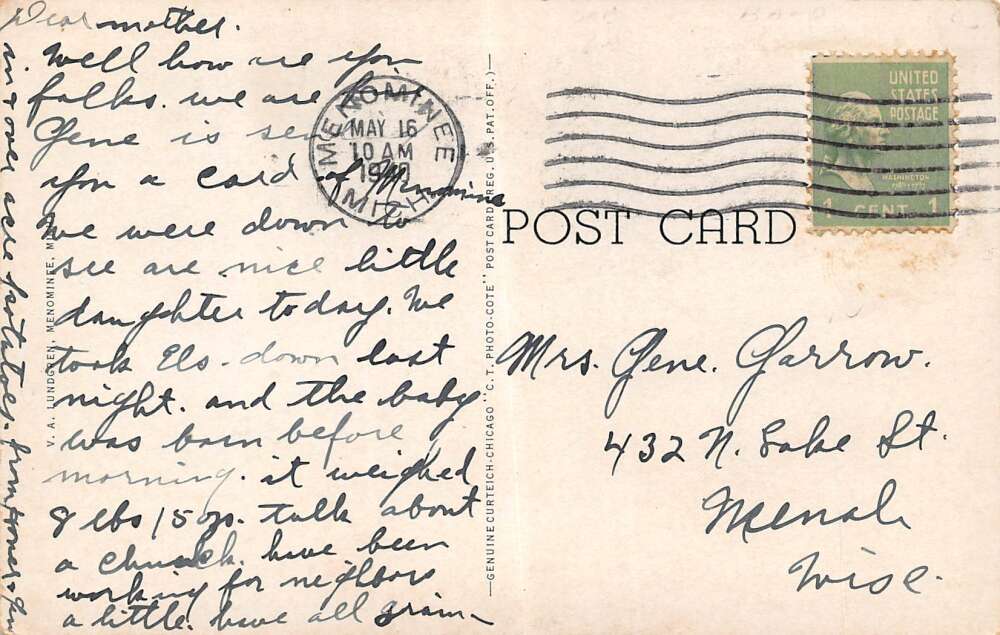 Dear mother.
Well how are you
folks. we are
Gene is
you a card of Menominee
We were down to
see are nice little
daughter today. We
took Els. down last
night. and the baby
was born before
morning. it weighed
8 lbs 15 ozs. talk about
a chunck. have been
working for neighbors
a little. have all grain
in + over acre potatoes. from Tones + Gene
MENOMINEE
MAY 16
10 AM
MICH.
UNITED
STATES
POSTAGE
WASHINGTON
1 CENT 1
POST CARD
V. A. LUNDGREN, MENOMINEE,
GENUINE CURTEICH-CHICAGO "C.T. PHOTO-COTE" POST CARD (REG. U.S. PAT. OFF.)
Mrs. Gene. Garrow.
432 N. Lake St.
Menah
Wisc.